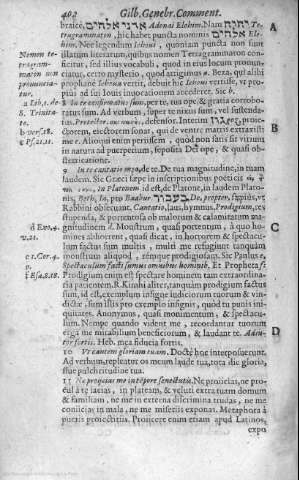 402 Gilb. Genebr. Comment.
braicè, יהוה אדני אלהים Adonai Elohim. Nam יהוה Te-
tragrammaton, hîc habet puncta nominis אלהים
Elohim. Nec legendum Iehoui, quoniam puncta non sunt
istarum literarum, quibus nomen Tetragrammaton con-
ficitur, sed illius vocabuli, quod in eius locum pronun-
ciatur, certo mysterio, quod attigimus a. Beza, qui alibi
prophanè Iehoua vertit, debuit hîc Iehoui vertisse, vt pro-
pius ad sui Iouis inuocationem accederet. Sic b.
Nomen te-
tragram-
maton non
pronuncia-
tur.
a Lib. 1. de
S. Trinita-
te.
b vers. 18.
c Ps. 21. 11.
A
B
8 In te confirmatus sum, per te, tua ope & gratia corrobo-
ratus sum. Ad verbum, super te nixus sum, vel sustenta-
extractor
proiectorem, eiectorem sonat, qui de ventre matris extraxisti
me c. Alioqui enim perissem, quod non satis sit virium
in natura ad puerperium, seposita Dei ope, & quasi ob-
stetricatione.
9 In te cantatio mea, de te. De tua magnitudine, in tuam
laudem. Sic Græci sæpe in inscriptionibus poëticis
in Platonem id est, de Platone, in laudem Plato-
nis, Beth, In, pro Baabur בעבור De, propter,
Rabbini obseruant. Cantatio, laus, hymnus. Prodigium, res
stupenda, & portentosa ob malorum & calamitatum ma-
gnitudinem d. Monstrum, quasi portentum, à quo ho-
mines abhorrent, quasi dicat, in horrorem & spectacu-
lum factus sum multis, multi me refugiunt tanquam
monstrum aliquod, rémque prodigiosam. Sic Paulus e,
Spectaculum facti sumus omnibus hominibus. Et Propheta f:
Prodigium enim est spectare hominem tam extraordina-
ria patientem. R. Kimhi aliter, tanquam prodigium factus
sum, id est, exemplum insigne iudiciorum tuorum & vin-
dictæ, sum illis pro exemplo insigni, quod tu punis ini-
quitates. Anonymus, quasi monumentum, & spectacu-
lum. Nempe quando vident me, recordantur tuorum
erga me mirabilium beneficiorum, & laudant te. Adiu-
tor fortis. Heb. mea fiducia fortis.
C
D
10 Vt cantem gloriam tuam. Doctè hoc interposuerunt.
Ad verbum, repleatur os meum laude tua, tota die gloria,
siue pulchritudine tua.
11 Ne proijcias me in tempore senectutis. Ne proijcias, ne pro-
cul à te iacias, in plateam, & veluti extra tuam domum
& familiam, ne me in extrema discrimina trudas, ne me
conijcias in mala, ne me miseriis exponas. Metaphora à
partus proiectitiis. Proijcere enim etiam apud Latinos,
expo